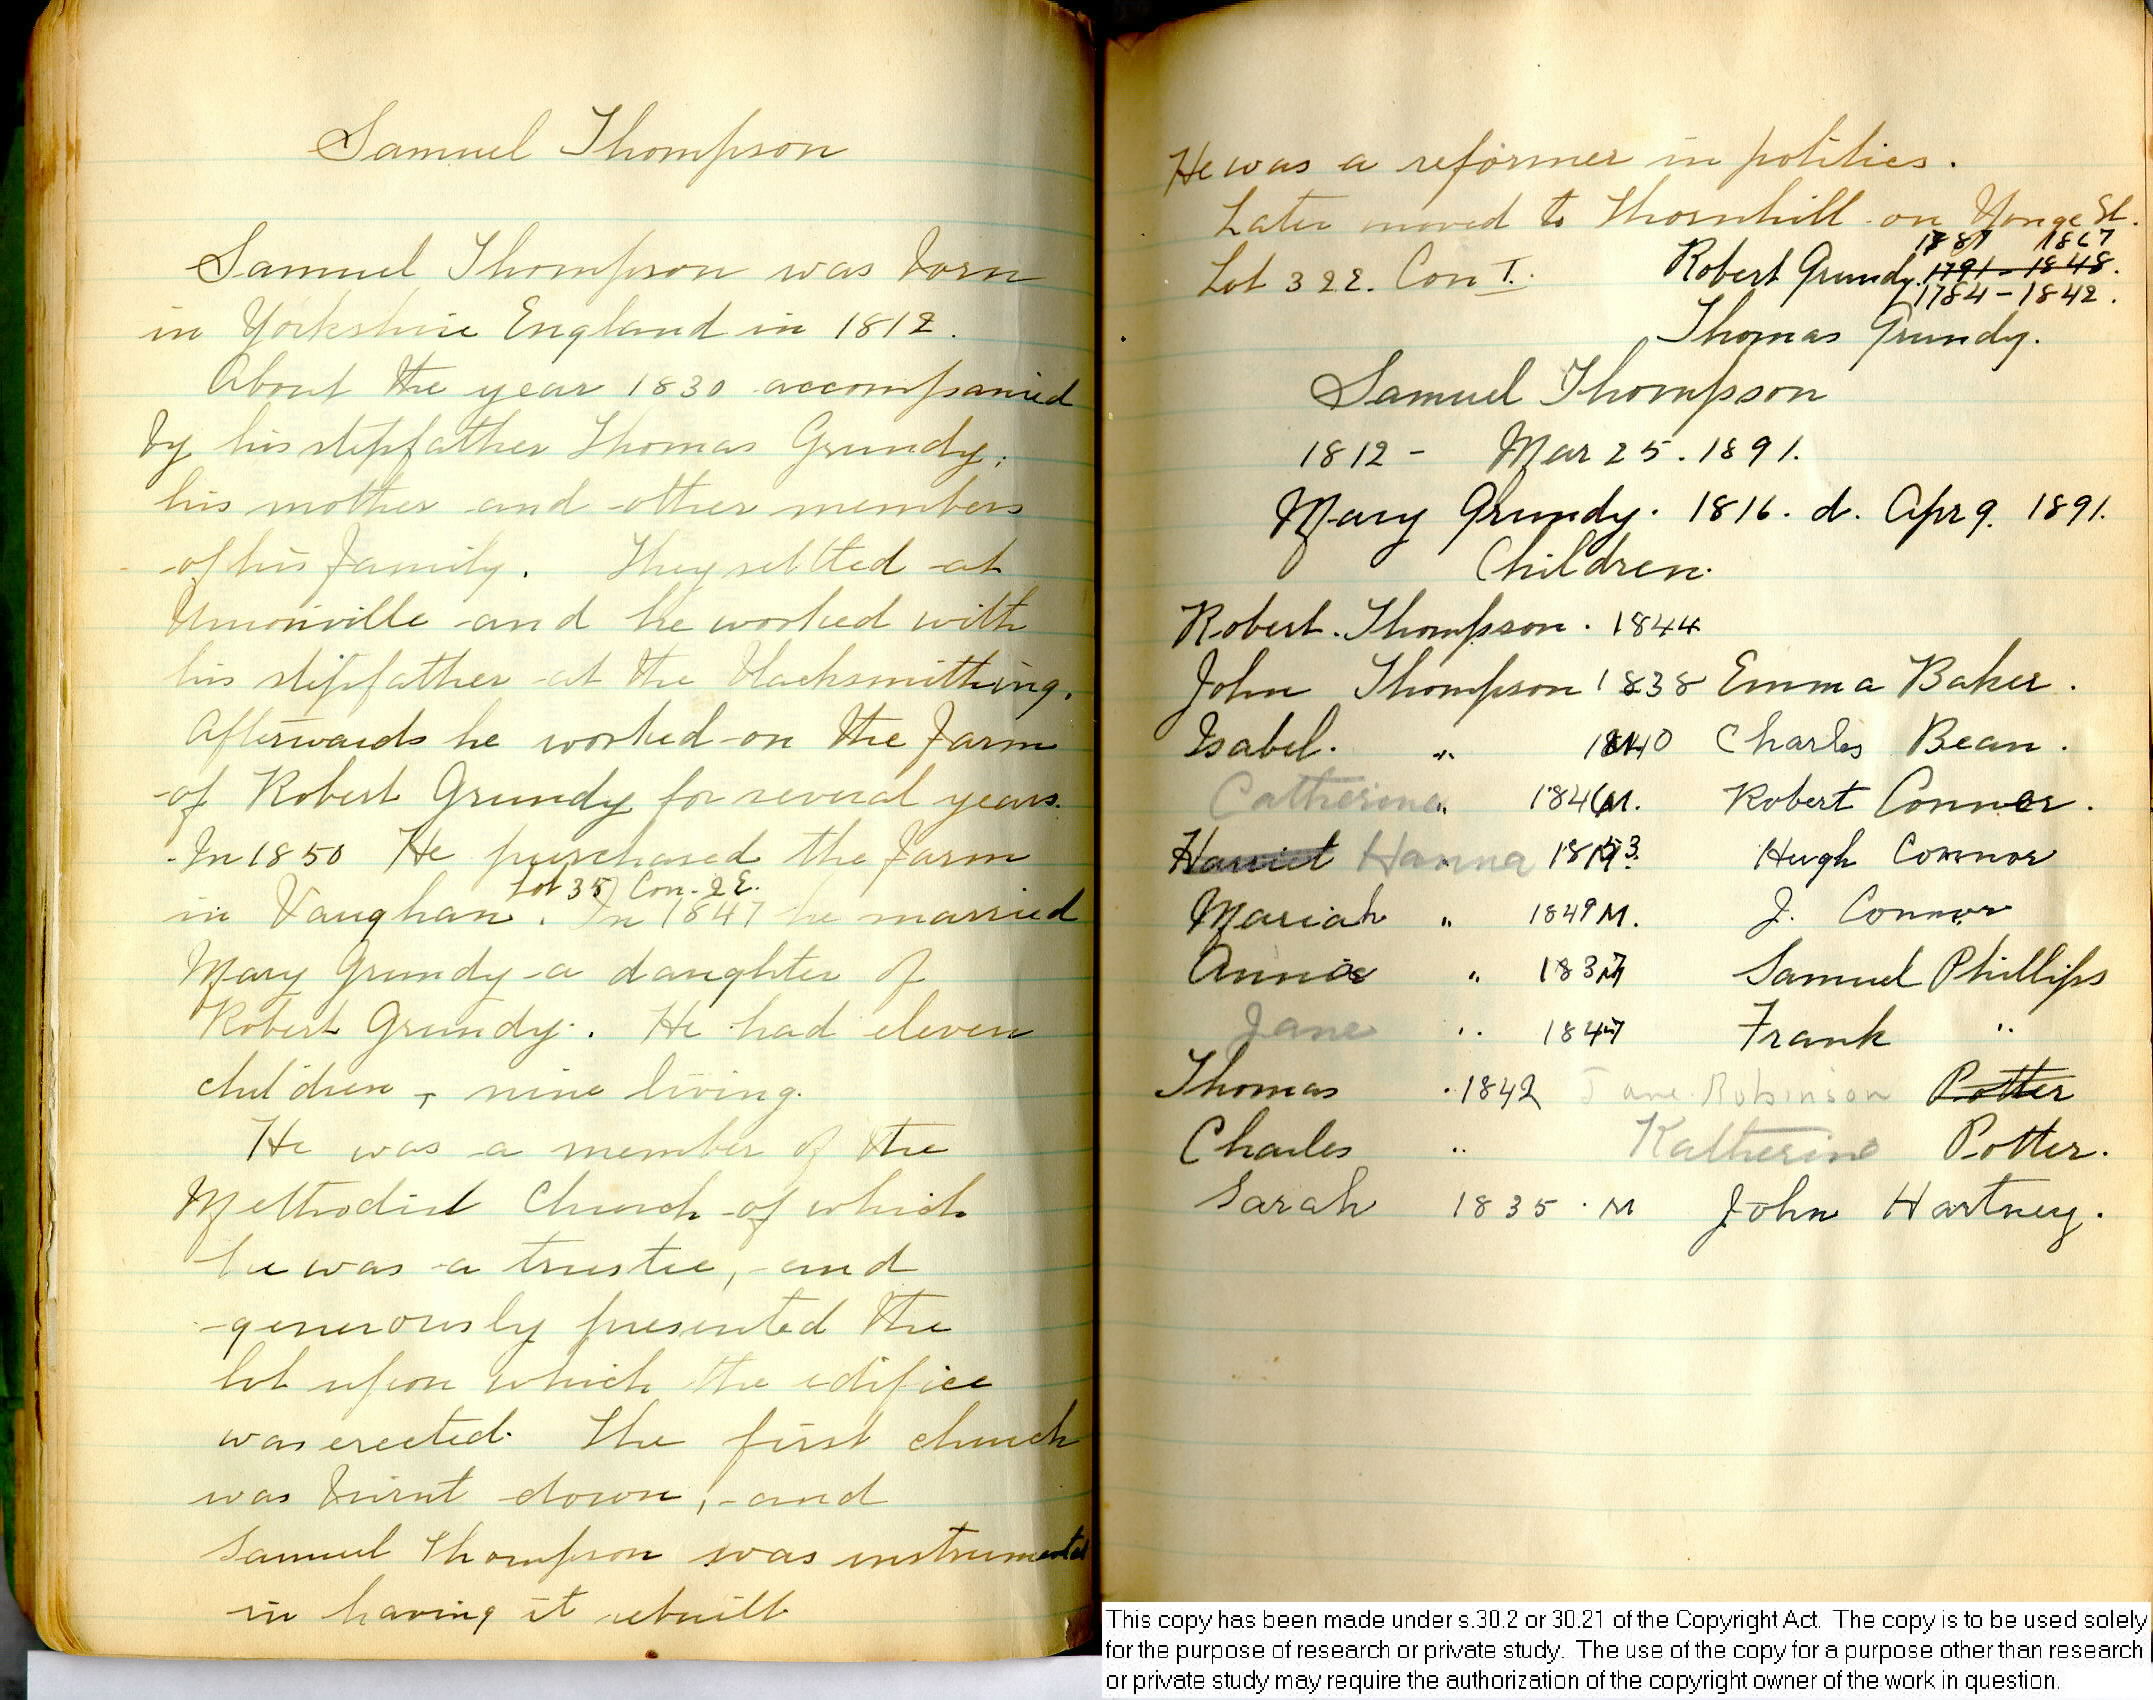 Samuel Thompson
Samuel Thompson was born
in Yorkshire England in 1812.
About the year 1830 accompanied
by his stepfather Thomas Grundy,
his mother and other members
of his family. They settled at
Unionville and he worked with
his stepfather at the blacksmithing.
Afterwards he worked on the farm
of Robert Grundy for several years.
In 1850 He purchased the farm
Lot 35 Con. 2 E.
in Vaughan. In 1847 he married
Mary Grundy a daughter of
Robert Grundy. He had eleven
children, nine living.
He was a member of the
Methodist Church of which
he was a trustee, and
generously presented the
lot upon which the edifice
was erected. The first church
was burnt down, and
Samuel Thompson was instrumental
in having it rebuilt
He was a reformer in politics.
Later moved to Thornhill on Yonge St.
1867
Lot 32 E. Con I. Robert Grundy. 1791-1848.
1784-1842.
Thomas Grundy.
Samuel Thompson
1812 - Mar 25. 1891.
Mary Grundy. 1816. d. Apr 9. 1891.
Children.
Robert. Thompson. 1844
John Thompson 1838 Emma Baker.
Isabel. " 1840 Charles Bean.
Catherine " M. Robert Connor.
Harriet Hanna Hugh Connor
Mariah " 1849 M. J. Connor
Annie " 1837 Samuel Phillips
Jane " 1847 Frank "
Thomas . 1842 Jane Robinson Potter
Charles " Katherine Potter.
Sarah 1835. M John Hartney.
This copy has been made under s.30.2 or 30.21 of the Copyright Act. The copy is to be used solely
for the purpose of research or private study. The use of the copy for a purpose other than research
or private study may require the authorization of the copyright owner of the work in question.